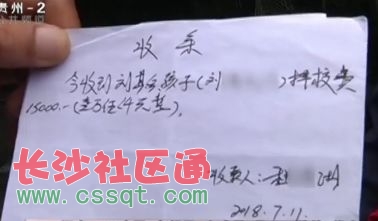 贵州-2
公共频道
收条
今收到刘某某孩子(刘 )择校费
15000.-(壹万伍仟元整).
收款人:
2018.7.11.
长沙社区通
www.cssqt.com